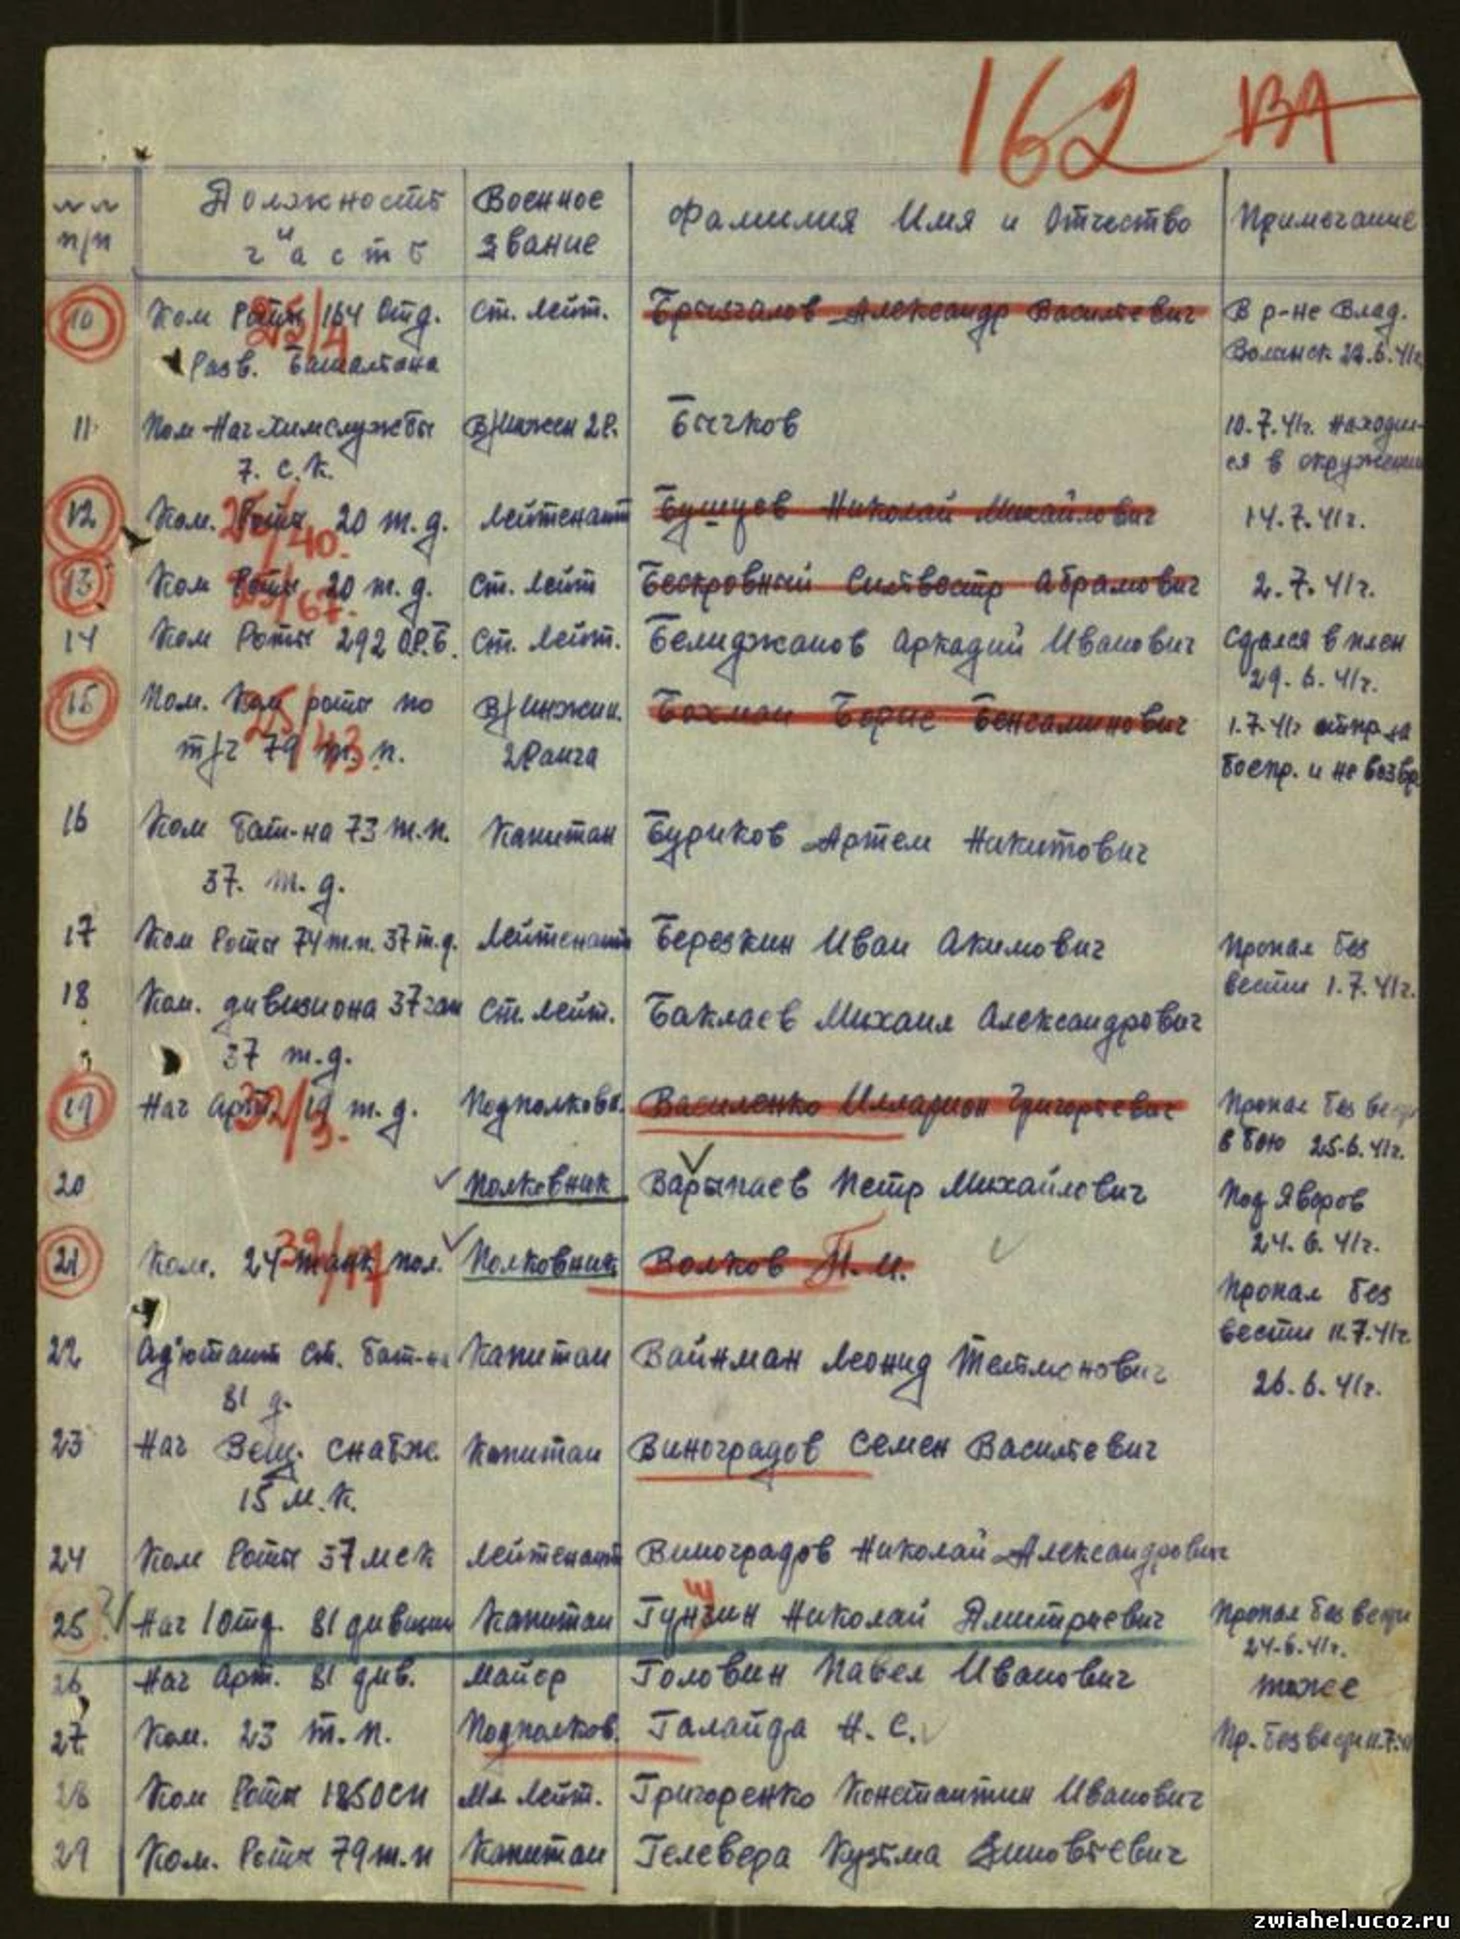 162 ВА
№№ п/п Должность и часть Военное звание Фамилия Имя и Отчество Примечание
10 Ком Роты 164 отд. Ст. лейт. Брызгалов Александр Васильевич В р-не Влад.
25/4
Разв. Батальона Волынск 22.6.41г.
11 Пом Нач химслужбы В/Инжен 2Р. Бычков 10.7.41г. находил-
7. С.К. ся в окружении
12 Ком. Роты 20 т.д. Лейтенант Николай Михайлович 14.7.41г.
25/40.
13 Ком Роты 20 т.д. Ст. Лейт Бескровный Сильвестр Абрамович 2.7.41г.
25/67.
14 Ком Роты 292 О.Р.Б. Ст. Лейт. Белиджанов Аркадий Иванович Сдался в плен
29.6.41г.
15 Пом. Ком роты по В/Инжен. Бахман Борис Бенсаминович 1.7.41г отпр. за
25/43
т/ч 79 т.п. 2Ранга боепр. и не возвр.
16 Ком Бат-на 73 т.п. Капитан Буриков Артем Никитович
37. т.д.
17 Ком Роты 74 т.п. 37 т.д. Лейтенант Березкин Иван Акимович Пропал без
вести 1.7.41г.
18 Ком. дивизиона 37 гап Ст. Лейт. Баклаев Михаил Александрович
37 т.д.
19 Нач Арт. 19 т.д. Подполковн. Василенко Илларион Григорьевич Пропал без вести
32/3.
в бою 25.6.41г.
20 Полковник Варыпаев Петр Михайлович Под Яворов
24.6.41г.
21 Ком. 24 танк пол. Полковник Волков П.И. Пропал без
вести 11.7.41г.
22 Ад'ютант Ст. Бат-на Капитан Вайнман Леонид 26.6.41г.
81 д.
23 Нач Вещ. Снабж. Капитан Виноградов Семен Васильевич
15 м.к.
24 Ком Роты 37 мсп Лейтенант Виноградов Николай Александрович
25 Нач 1 Отд. 81 дивизии Капитан Гунзин Николай Дмитриевич Пропал без вести
24.6.41г.
26 Нач Арт. 81 див. Майор Головин Павел Иванович тоже
27. Ком. 23 т.п. Подполков. Галайда Н.С. Пр. без вести 11.7.41
28 Ком Роты Мл Лейт. Григоренко Константин Иванович
29 Ком. Роты 79 т.п Капитан Гелевера Кузьма Зиновьевич
zwiahel.ucoz.ru